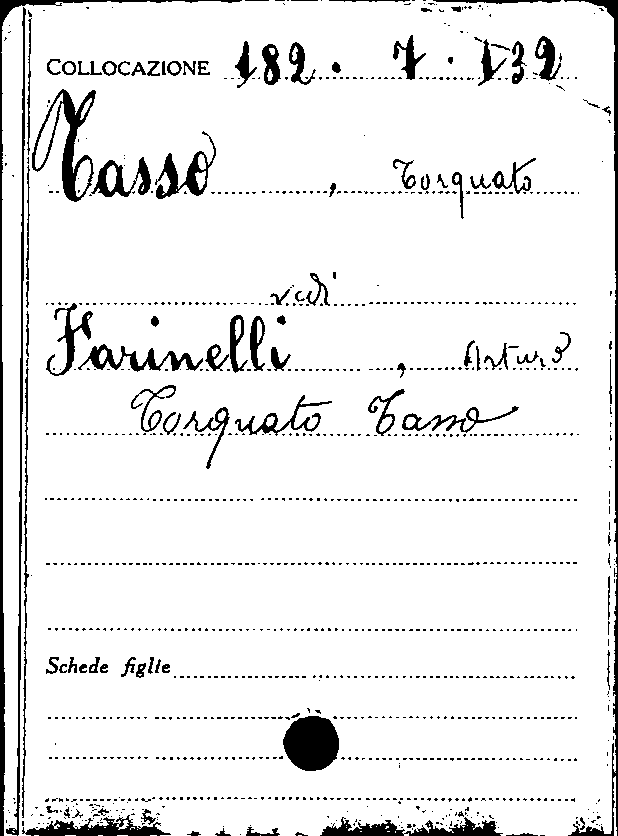 COLLOCAZIONE 182. 7. 132
Tasso, Torquato
vedi
Farinelli, Arturo
Torquato Tasso
Schede figlie